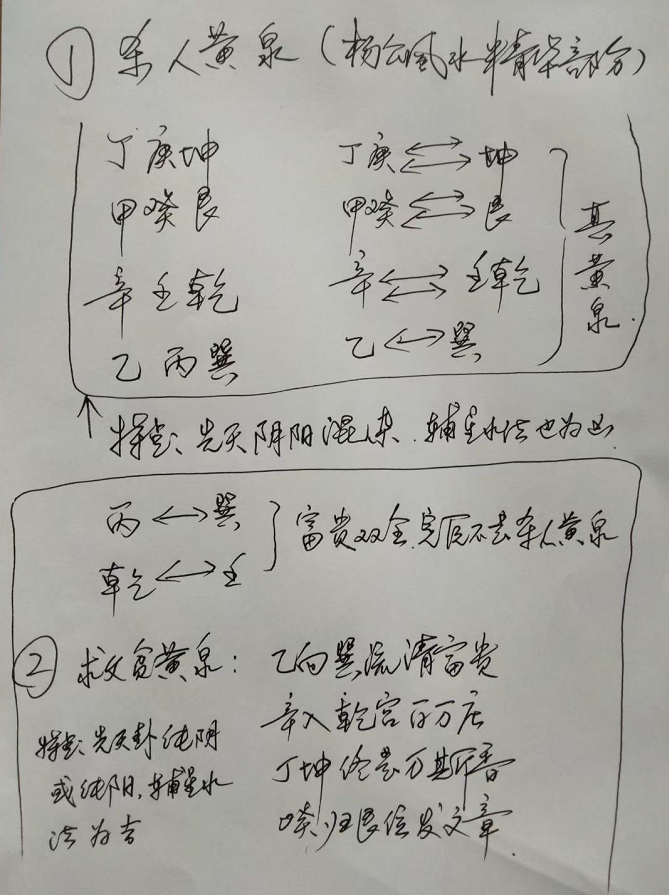 ① 杀人黄泉（杨公风水精华部分）
丁庚坤 丁庚⇄坤
甲癸艮 甲癸⇄艮
辛壬乾 辛⇄壬乾
乙丙巽 乙↔巽
真黄泉.
↑ 特点：先天阴阳混杂，辅星水法也为凶.
丙↔巽
乾↔壬
富贵双全 杀人黄泉
② 救贫黄泉：
乙向巽流清富贵
辛入乾宫百万庄
丁坤终是万斯香
癸归艮位发文章
特点：先天卦纯阴
或纯阳，辅星水
法为吉